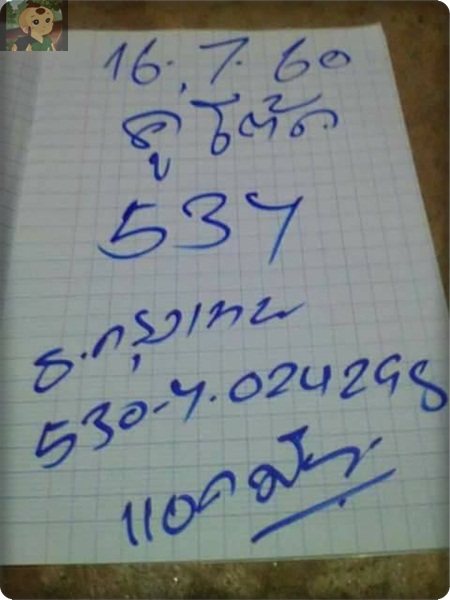 16.7.60
คู่โต๊ด
537
ธ.กรุงเทพ
530-7.024298
แอดมิน